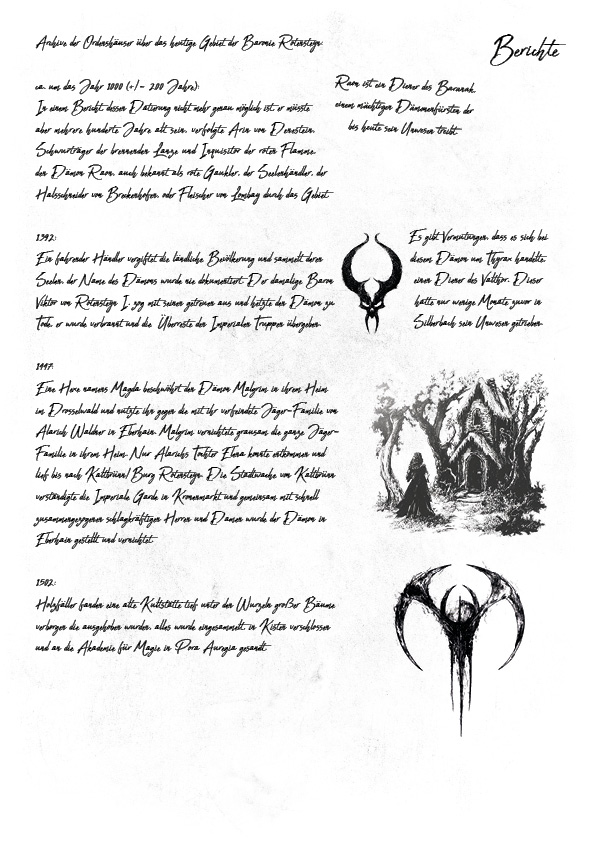 Archive der Ordenshäuser über das heutige Gebiet der Baronie Rotenstegn:
Berichte
ca. um das Jahr 1000 (+/- 200 Jahre):
In einem Bericht, dessen Datierung nicht mehr genau möglich ist, er müsste
aber mehrere hunderte Jahre alt sein, verfolgte Arin von Denestein,
Schwurträger der brennenden Lanze und Inquisitor der roten Flamme,
den Dämon Raon, auch bekannt als rote Gaukler, der Seelenhändler, der
Halsschneider von Breckenhofen, oder Fleischer von Lombay durch das Gebiet
Raon ist ein Diener des Baranah,
einem mächtigen Dämonenfürsten der
bis heute sein Unwesen treibt.
1392:
Ein fahrender Händler vergiftet die ländliche Bevölkerung und sammelt deren
Seelen, der Name des Dämons wurde nie dokumentiert. Der damalige Baron
Viktor von Rotenstegn I. zog mit seinen getreuen aus und hetzte den Dämon zu
Tode, er wurde verbrannt und die Überreste den Imperialen Truppen übergeben.
Es gibt Vermutungen, dass es sich bei
diesem Dämon um Thyrax handelte,
einen Diener des Valthor. Dieser
hatte nur wenige Monate zuvor in
Silberbach sein Unwesen getrieben.
1447:
Eine Hexe namens Magda beschwöhrt den Dämon Malgrim in ihrem Heim
im Drosselwald und nützte ihn gegen die mit ihr verfeindete Jäger-Familie von
Alarich Waldner in Eberhain. Malgrim vernichtete grausam die ganze Jäger-
Familie in ihrem Heim. Nur Alarichs Tochter Elena konnte entkommen und
lief bis nach Kaltbrünn/ Burg Rotenstegn. Die Stadtwache von Kaltbrünn
verständigte die Imperiale Garde in Kronenmarkt und gemeinsam mit schnell
zusammengezogenen schlagkräftigen Herren und Damen wurde der Dämon in
Eberhain gestellt und vernichtet.
1502:
Holzfäller fanden eine alte Kultstätte tief unter den Wurzeln großer Bäume
verborgen die ausgehoben wurden, alles wurde eingesammelt, in Kisten verschlossen
und an die Akademie für Magie in Pora Auregia gesandt.